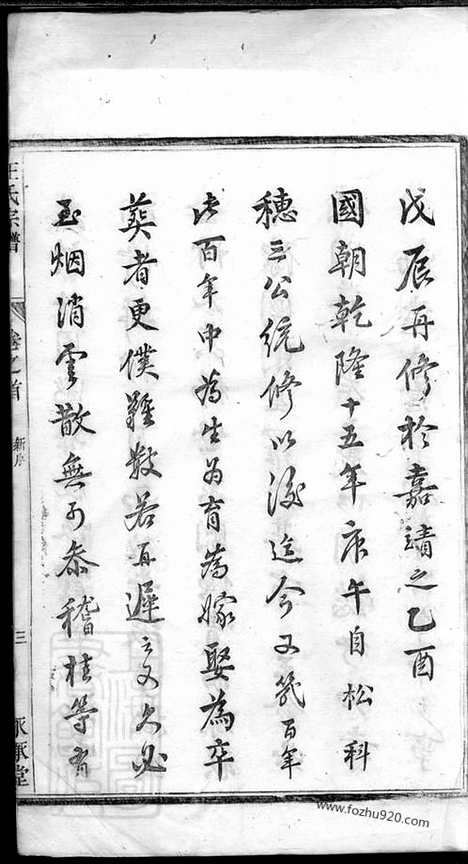 戊辰再修於嘉靖之乙酉
國朝乾隆十五年庚午自松科
穗三公統修以後迄今又幾百年
此百年中為生為育為嫁娶為卒
葬者更僕難數若再遲之又久必
至烟消雲散無可叅稽桂等有
王氏宗譜
卷之首
新序
三
永承堂
www.fozhu920.com